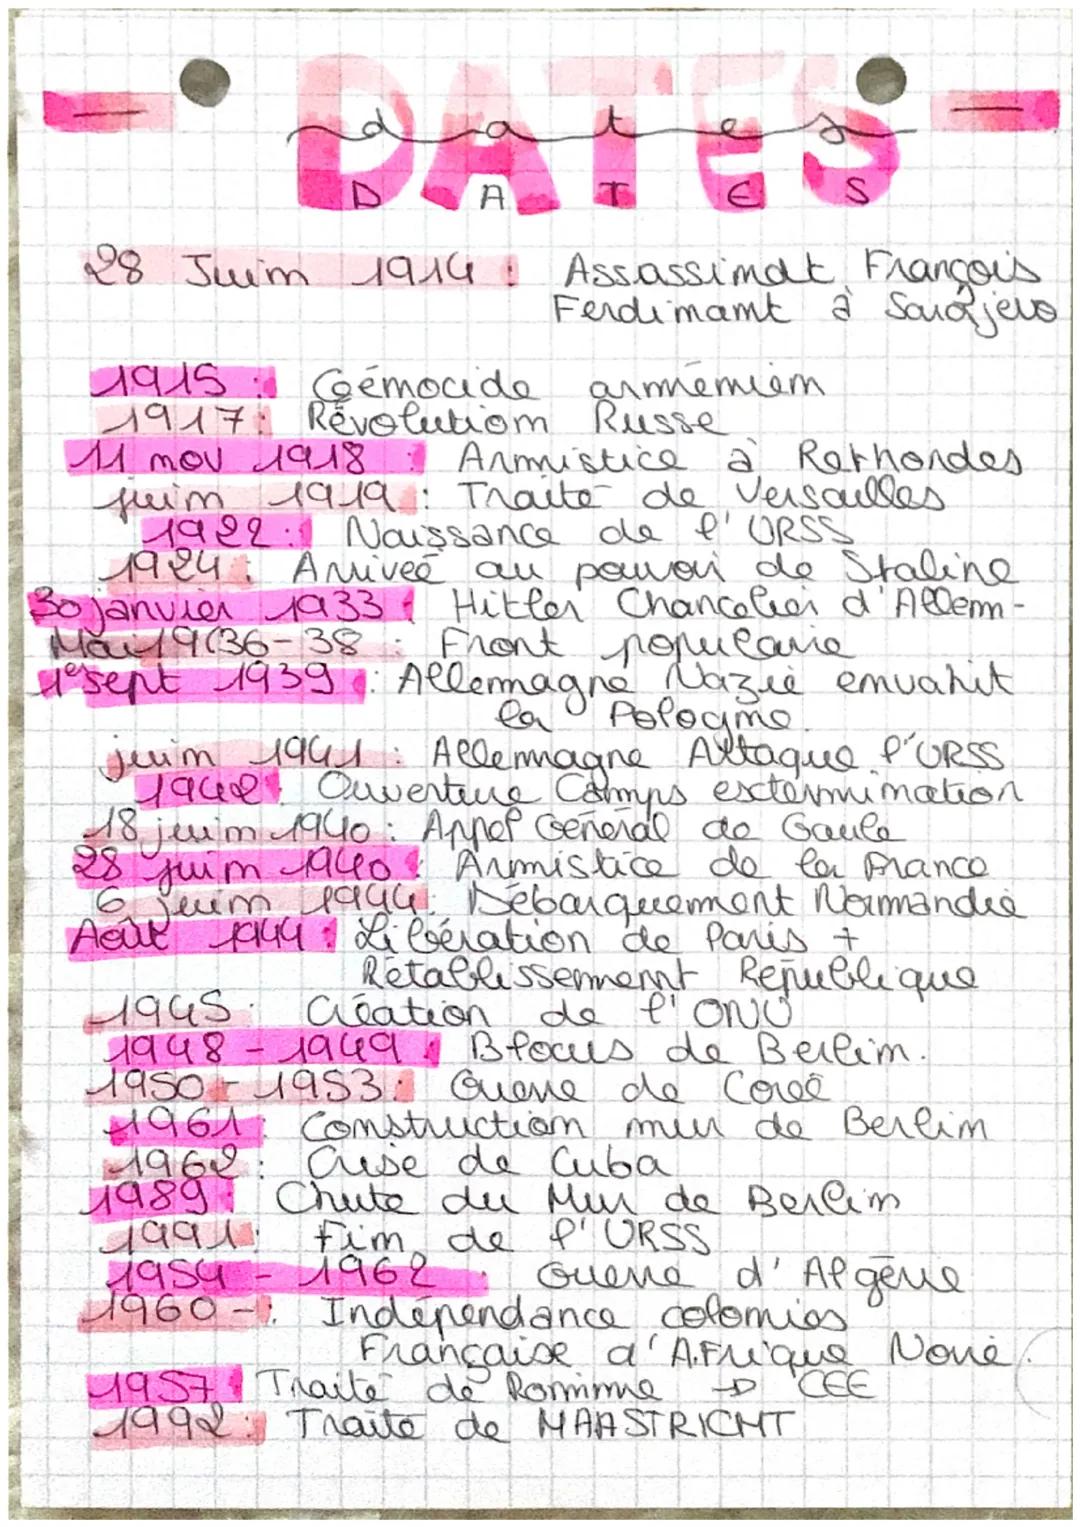 DATES
dates
D A T E S
28 Juin 1914 : Assassinat François
Ferdinant à Sarajevo
1915 : Génocide arménien
1917 : Révolution Russe
11 nov 1918 : Armistice à Rethondes
juin 1919 : Traité de Versailles
1922 : Naissance de l'URSS
1924 : Arrivée au pouvoir de Staline
30 janvier 1933 : Hitler Chancelier d'Allem-
Mai 1936-38 : Front populaire
1er sept 1939 : Allemagne Nazie envahit
la Pologne
juin 1941 : Allemagne Attaque l'URSS
1942 : Ouverture Camps extermination
18 juin 1940 : Appel Général de Gaule
28 juin 1940 : Armistice de la France
6 juin 1944 : Débarquement Normandie
Août 1944 : Libération de Paris +
Rétablissement République
1945 : Création de l'ONU
1948 - 1949 : Blocus de Berlin.
1950 - 1953 : Guerre de Corée
1961 : Construction mur de Berlin
1962 : Crise de Cuba
1989 : Chute du Mur de Berlin
1991 : Fin de l'URSS
1954 - 1962 : Guerre d'Algérie
1960 - : Indépendance colonies
Française d'Afrique Noire.
1957 : Traité de Romme → CEE
1992 : Traité de MAASTRICHT